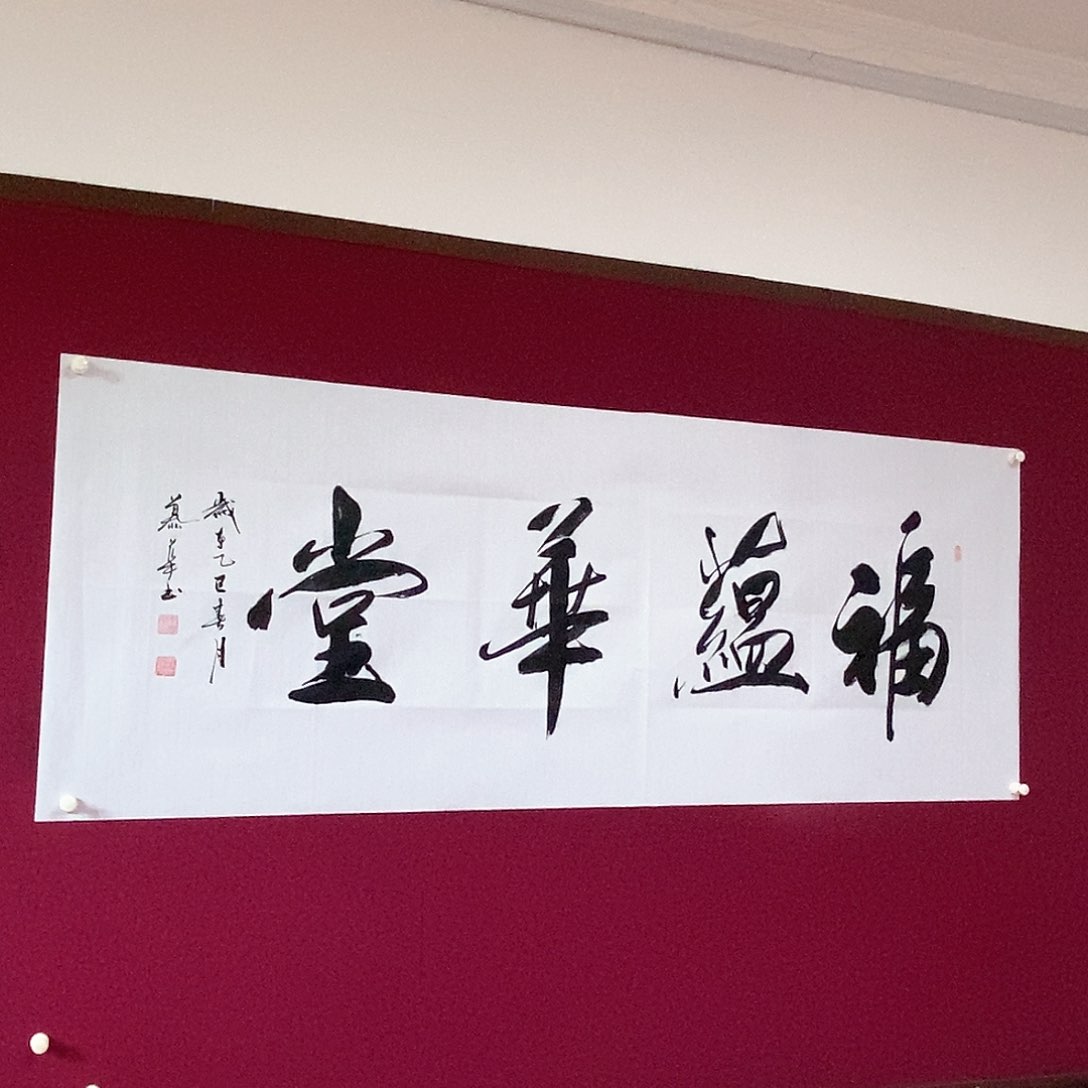 福蘊華堂
歲在乙巳春月
慕華書